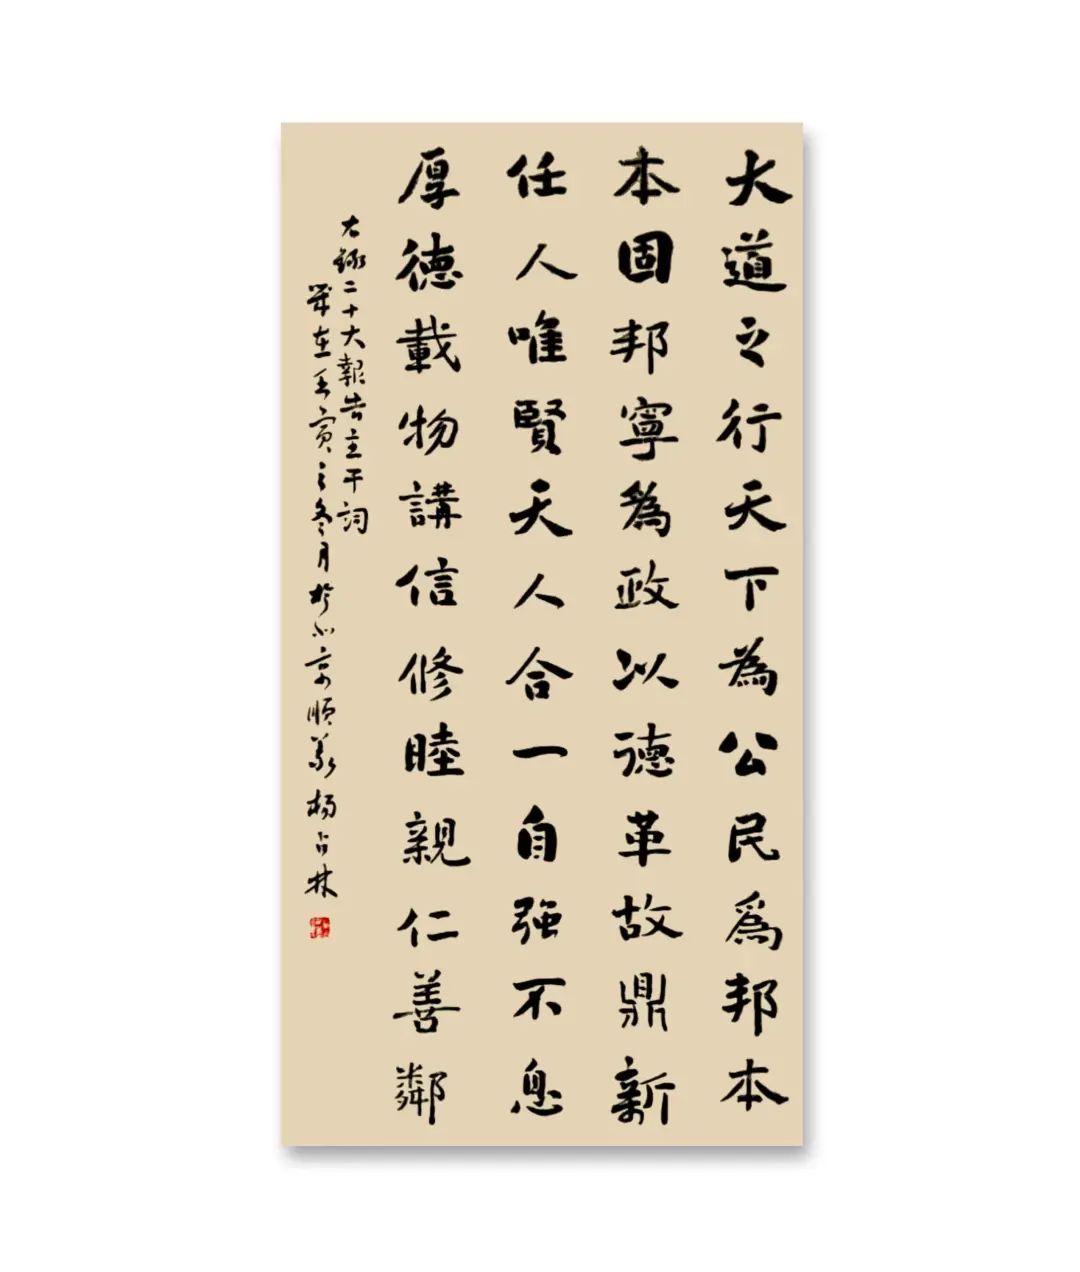 大道之行天下為公民為邦本
本固邦寧為政以德革故鼎新
任人唯賢天人合一自强不息
厚德載物講信修睦親仁善鄰
右錄二十大報告主干詞
歲在壬寅之冬月於北京順義楊占林